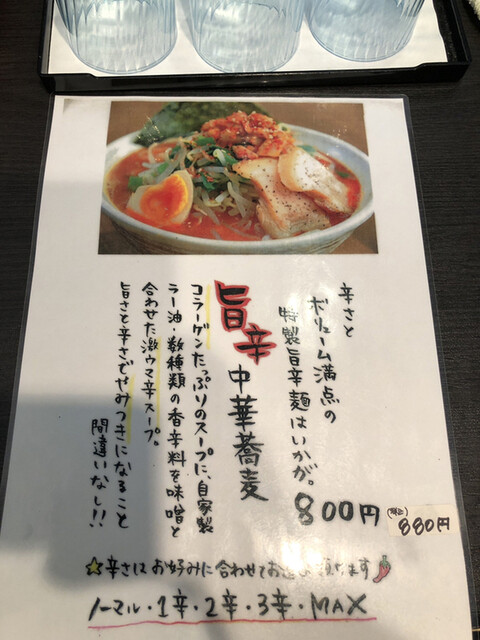 辛さと
ボリューム満点の
特製旨辛麺はいかが。
800円
(税込)
880円
旨辛中華蕎麦
コラーゲンたっぷりのスープに、自家製
ラー油・数種類の香辛料を味噌と
合わせた激ウマ辛スープ。
旨さと辛さでやみつきになること
間違いなし!!
☆辛さはお好みに合わせてお選び頂けます
ノーマル・1辛・2辛・3辛・MAX